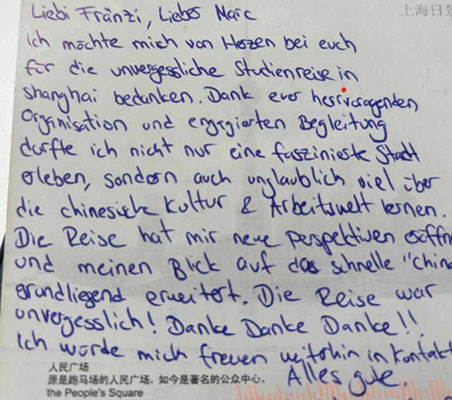 上海日景
Liebi Fränzi, Liebs Marc
Ich möchte mich von Hezen bei euch
für die unvergessliche Studienreise in
Shanghai bedanken. Dank euer hervoragenden
Organisation und engagierten Begleitung
durfte ich nicht nur eine faszinierte Stadt
erleben, sondern auch unglaublich viel über
die chinesische Kultur & Arbeitswelt lernen.
Die Reise hat mir neue Perspektiven eröffn
und meinen Blick auf das schnelle "China
grundliegend erweitert. Die Reise war
unvergesslich! Danke Danke Danke!!
Ich würde mich freuen weiterhin in Kontakt
Alles gute
人民广场
原是跑马场的人民广场，如今是著名的公众中心。
the People's Square